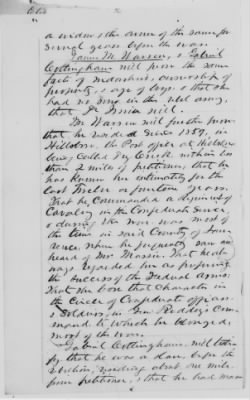 a widow & the owner of the same for
several years before the war.
James M. Warren, & Gabriel
Cottingham will prove the same
facts of residence, ownership of
property, & age of boys & that she
had no sons in the rebel army,
that
Mr Warren will further prove
that he resided since 1859, in
the Post office at
being called Dry Creek within less
than 2 miles of petitioner, that he
has known her intimately for the
last twelve or fourteen years.
That he commanded a Regiment of
Cavalry in the Confederate Service
& during the war, was most of
the time in said County of Law
rence, where he frequently saw and
heard of Mrs Massie. That he al
ways regarded her as
the success of the Federal Arms.
That she bore that character in
the circle of Confederate officers
& Soldiers, in Gen Roddeys Com
mand to which he belonged,
most of the war.
Gabriel Cottingham, will testi
fy that he was a slave, before the
rebellion, residing about one mile
from petitioner, & that he had